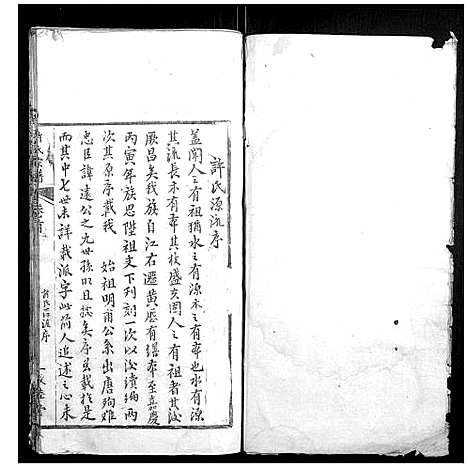 許氏源流序
蓋聞人之有祖猶水之有源木之有本也水有源
其流長木有本其枝盛亥閎人之有祖者其後
厥昌矣我族自江右遷黃歷有繕本至嘉慶
丙寅年族思陞祖文下列刻一次以後續編兩
次其原序載我 始祖明甫公系出唐殉难
忠臣諱遠公之九世孫明且核矣序虽載於是
而其中七世未詳載派字此前人追述之心未
許氏宗譜 卷首
許氏源流序 一